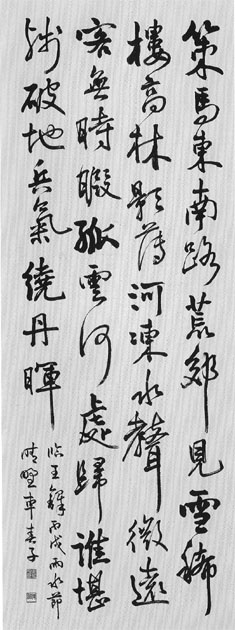 策馬東南路荒郊見雪稀
樓高林影薄河凍水聲微遠
客無時暇孤雲何處歸誰堪
殘破地兵氣繞丹暉
臨王鐸丙戌雨水節
車春子